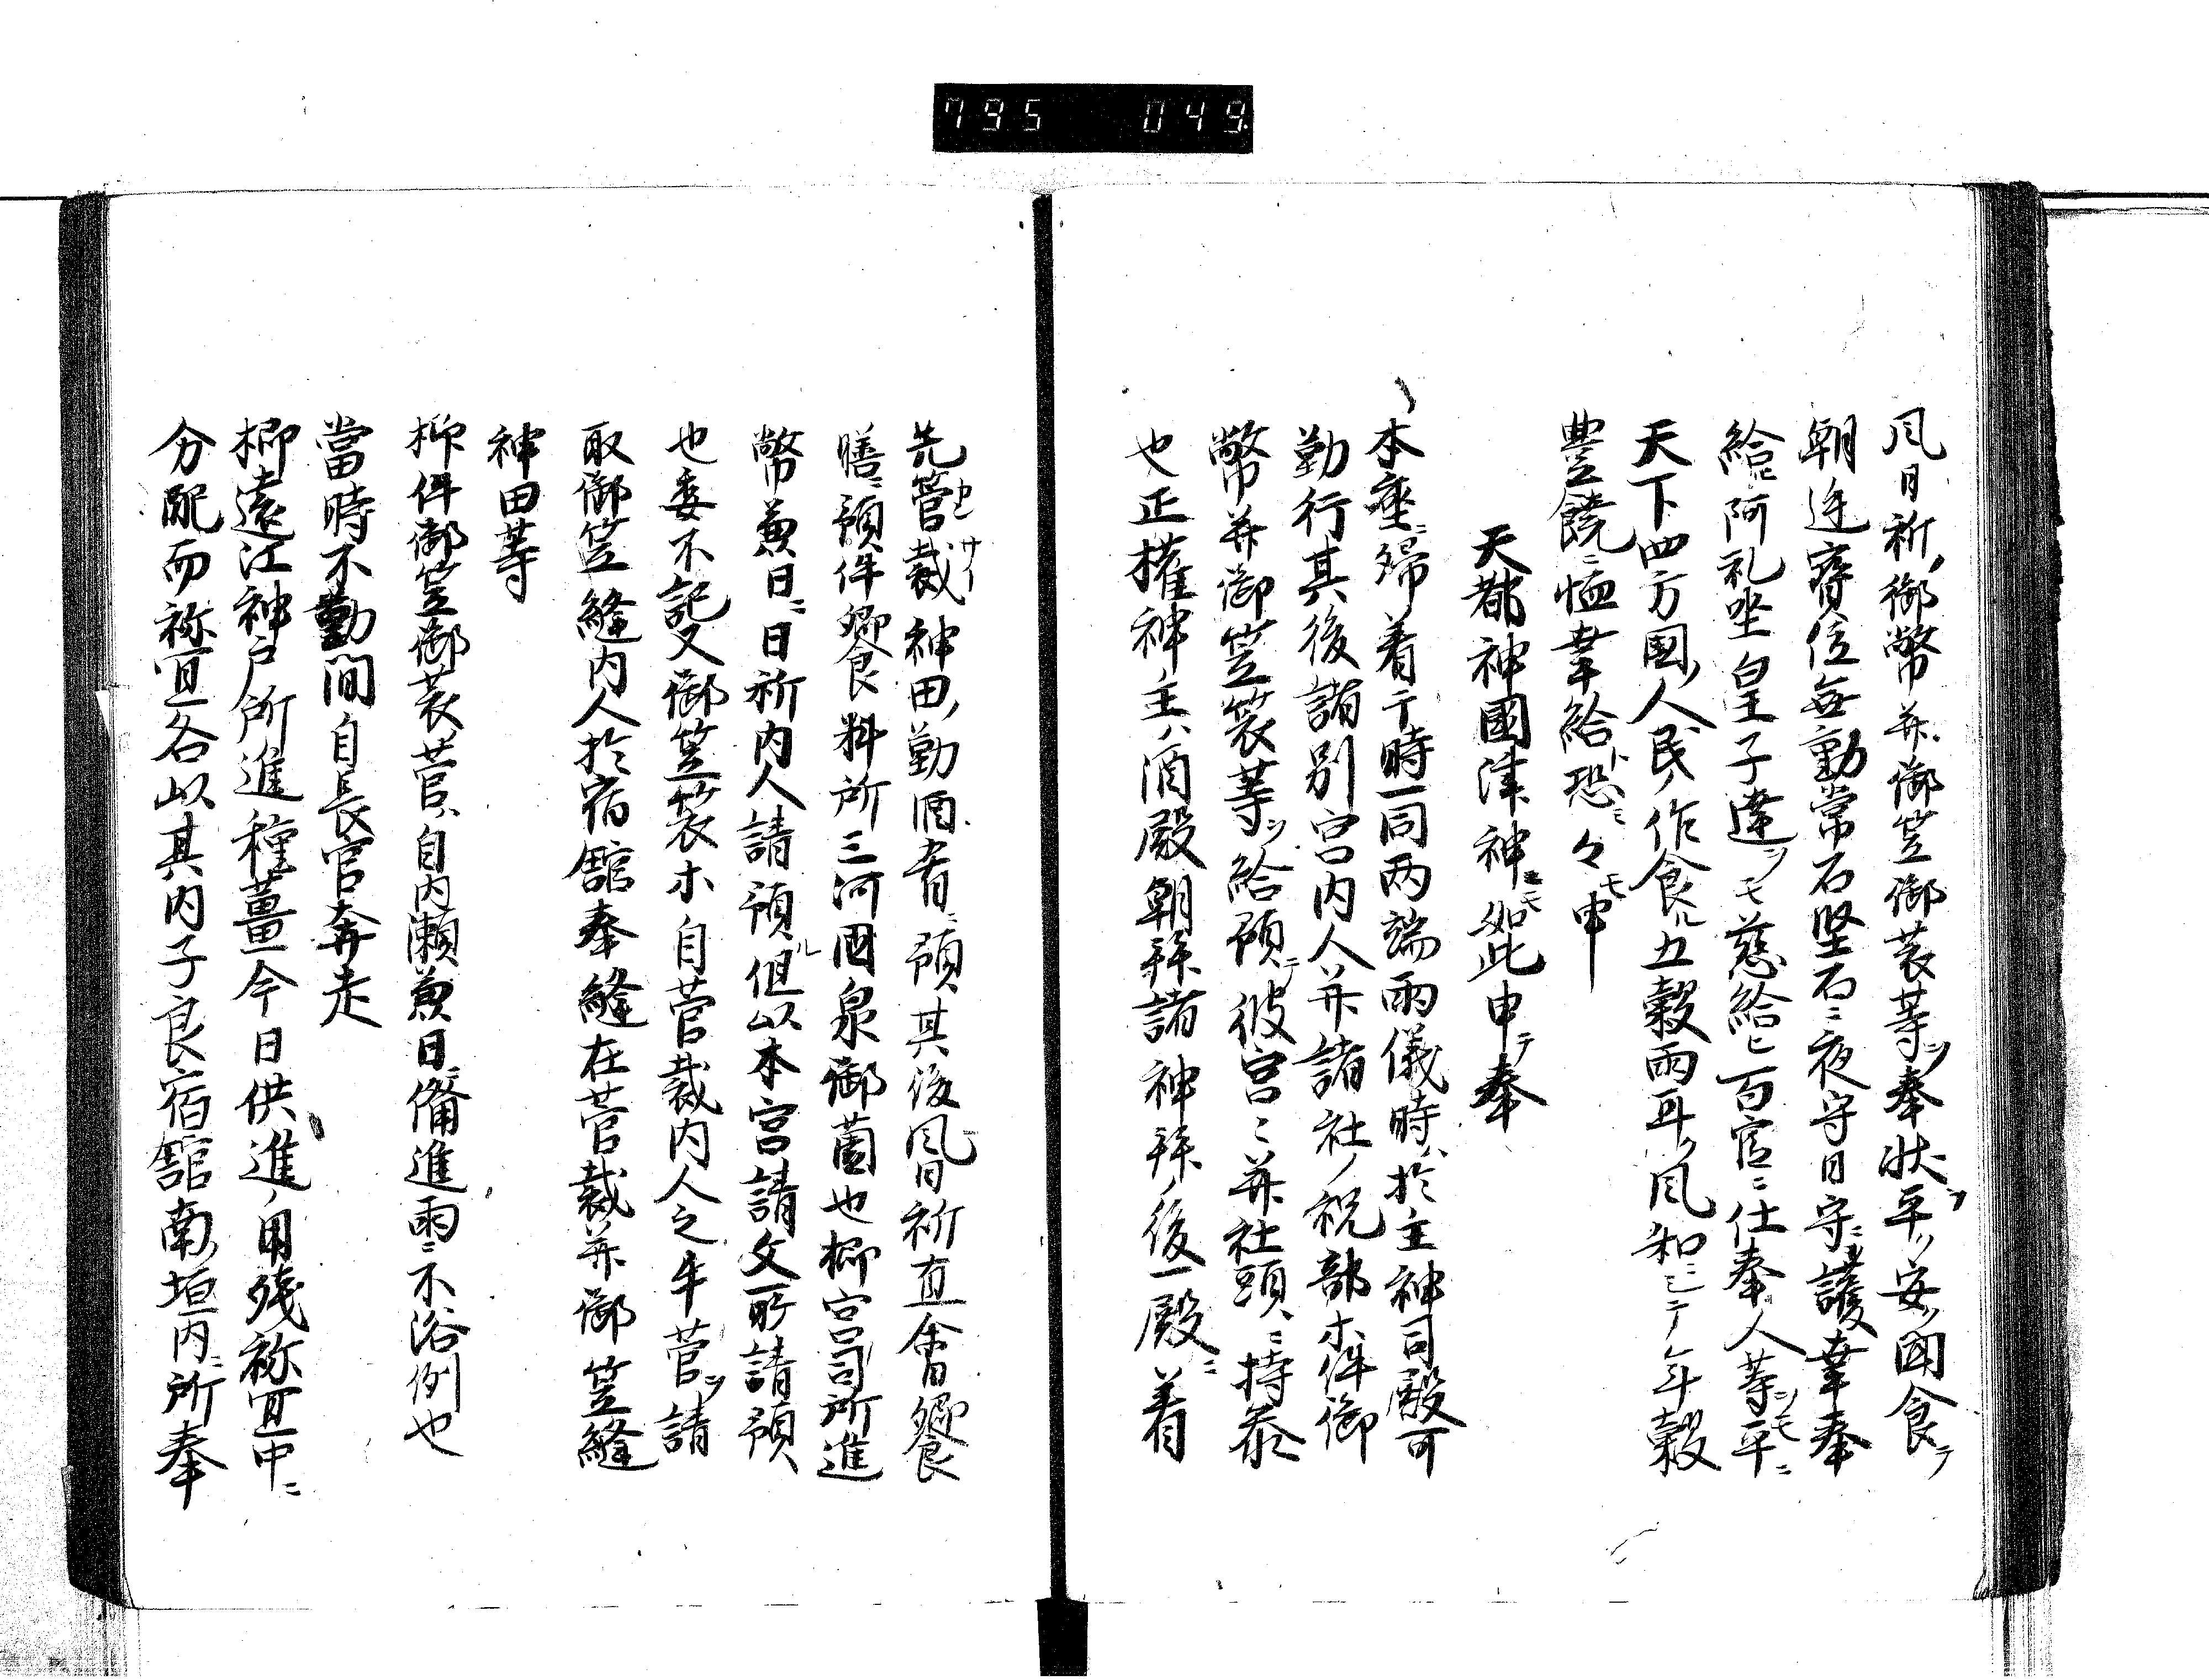 795 049
風日祈ノ御幣并御笠御蓑等ヲ奉状ヲ平ク安ク聞食テ
朝廷宝位無動常石堅石ニ夜守日守ニ護幸奉
給ヒ阿礼坐皇子達ヲモ慈給ヒ百官ニ仕奉人等ヲモ平ニ
天下四方國ノ人民ノ作食ル五穀雨耳ノ風和ニシテ年穀
豊饒ニ恤幸給ト恐ミ々モ申
天都神國津神ニモ如此申テ奉
本座ニ歸着于時一同両端両儀時ハ於主神司殿可
勤行其後諸別宮内人并諸社ノ祝部ホ件御
幣并御笠蓑等ヲ給預テ彼宮ニ并社頭ニ持参
也正権神主ハ酒殿朝拜諸神拜ノ後一殿ニ着
先管裁神田ノ勤酒肴ニ預其後風日祈直會饗
膳ニ預件饗料所三河国泉御薗也抑宮司所進
幣兼日ニ日祈内人請預ル但以本宮請文所請預
也委不記又御笠蓑ホ自菅裁内人之手菅ヲ請
取御笠縫内人於宿舘奉縫在菅裁并御笠縫
神田等
抑件御笠御蓑菅ハ自内瀬兼日ニ備進雨ニ不浴例也
當時不勤間自長官奔走
抑遠江神戸所進種薑今日供進ノ用残祢宜中ニ
分配而祢宜各以其内子良宿舘南ノ垣内ニ所奉